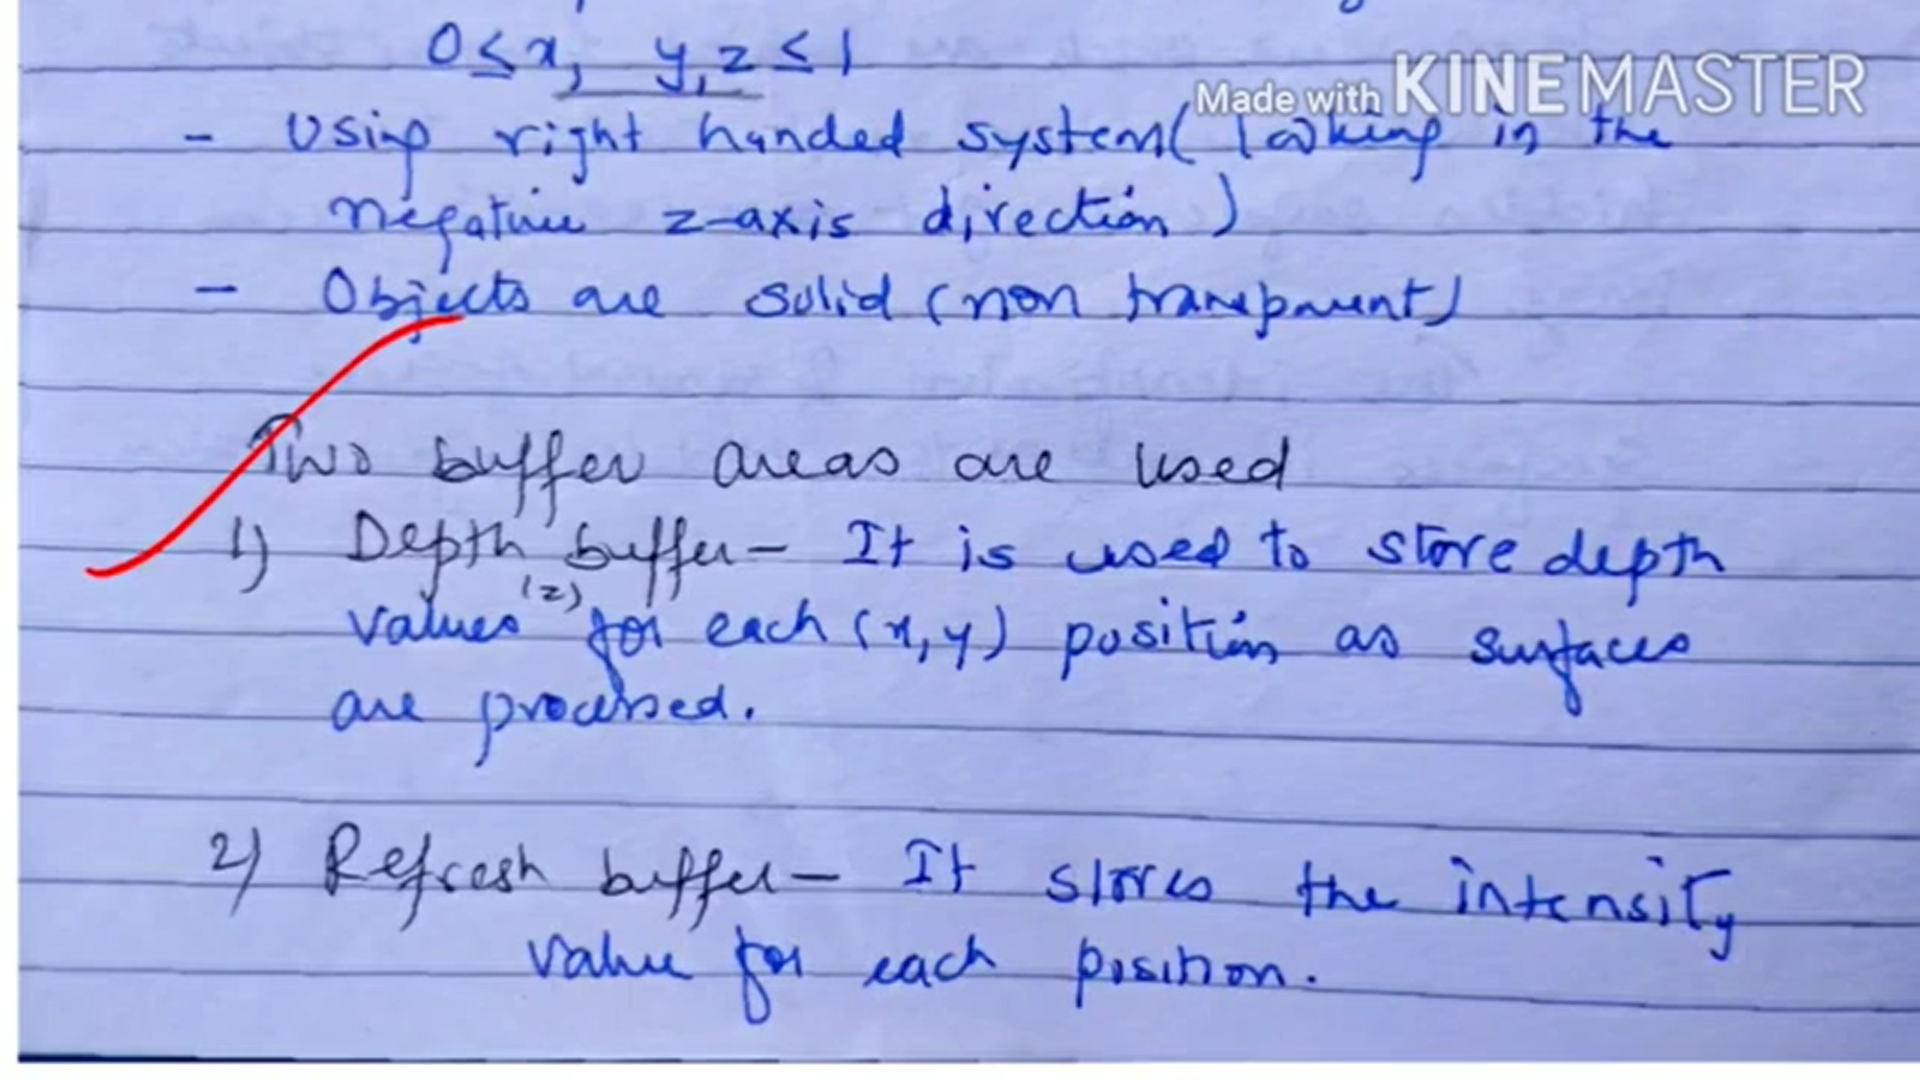 0 ≤ x, y, z ≤ 1
Made with KINEMASTER
- Using right handed system (looking in the
negative z-axis direction)
- Objects are solid (non transparent)
Two buffer areas are used
1) Depth buffer - It is used to store depth
values (z) for each (x, y) position as surfaces
are processed.
2) Refresh buffer - It stores the intensity
value for each position.